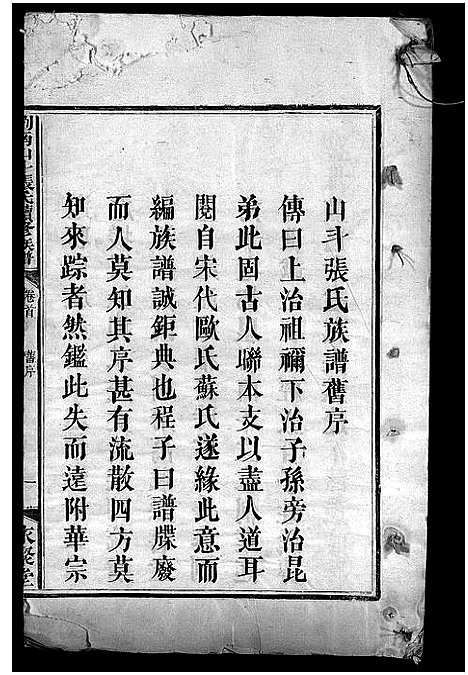 山斗張氏族譜舊序
傳曰上治祖禰下治子孫旁治昆
弟此固古人聯本支以盡人道耳
閱自宋代歐氏蘇氏遂緣此意而
編族譜誠鉅典也程子曰譜牒廢
而人莫知其序甚有流散四方莫
知來踪者然鑑此失而遠附華宗
張氏續修族譜
卷首
舊序
一